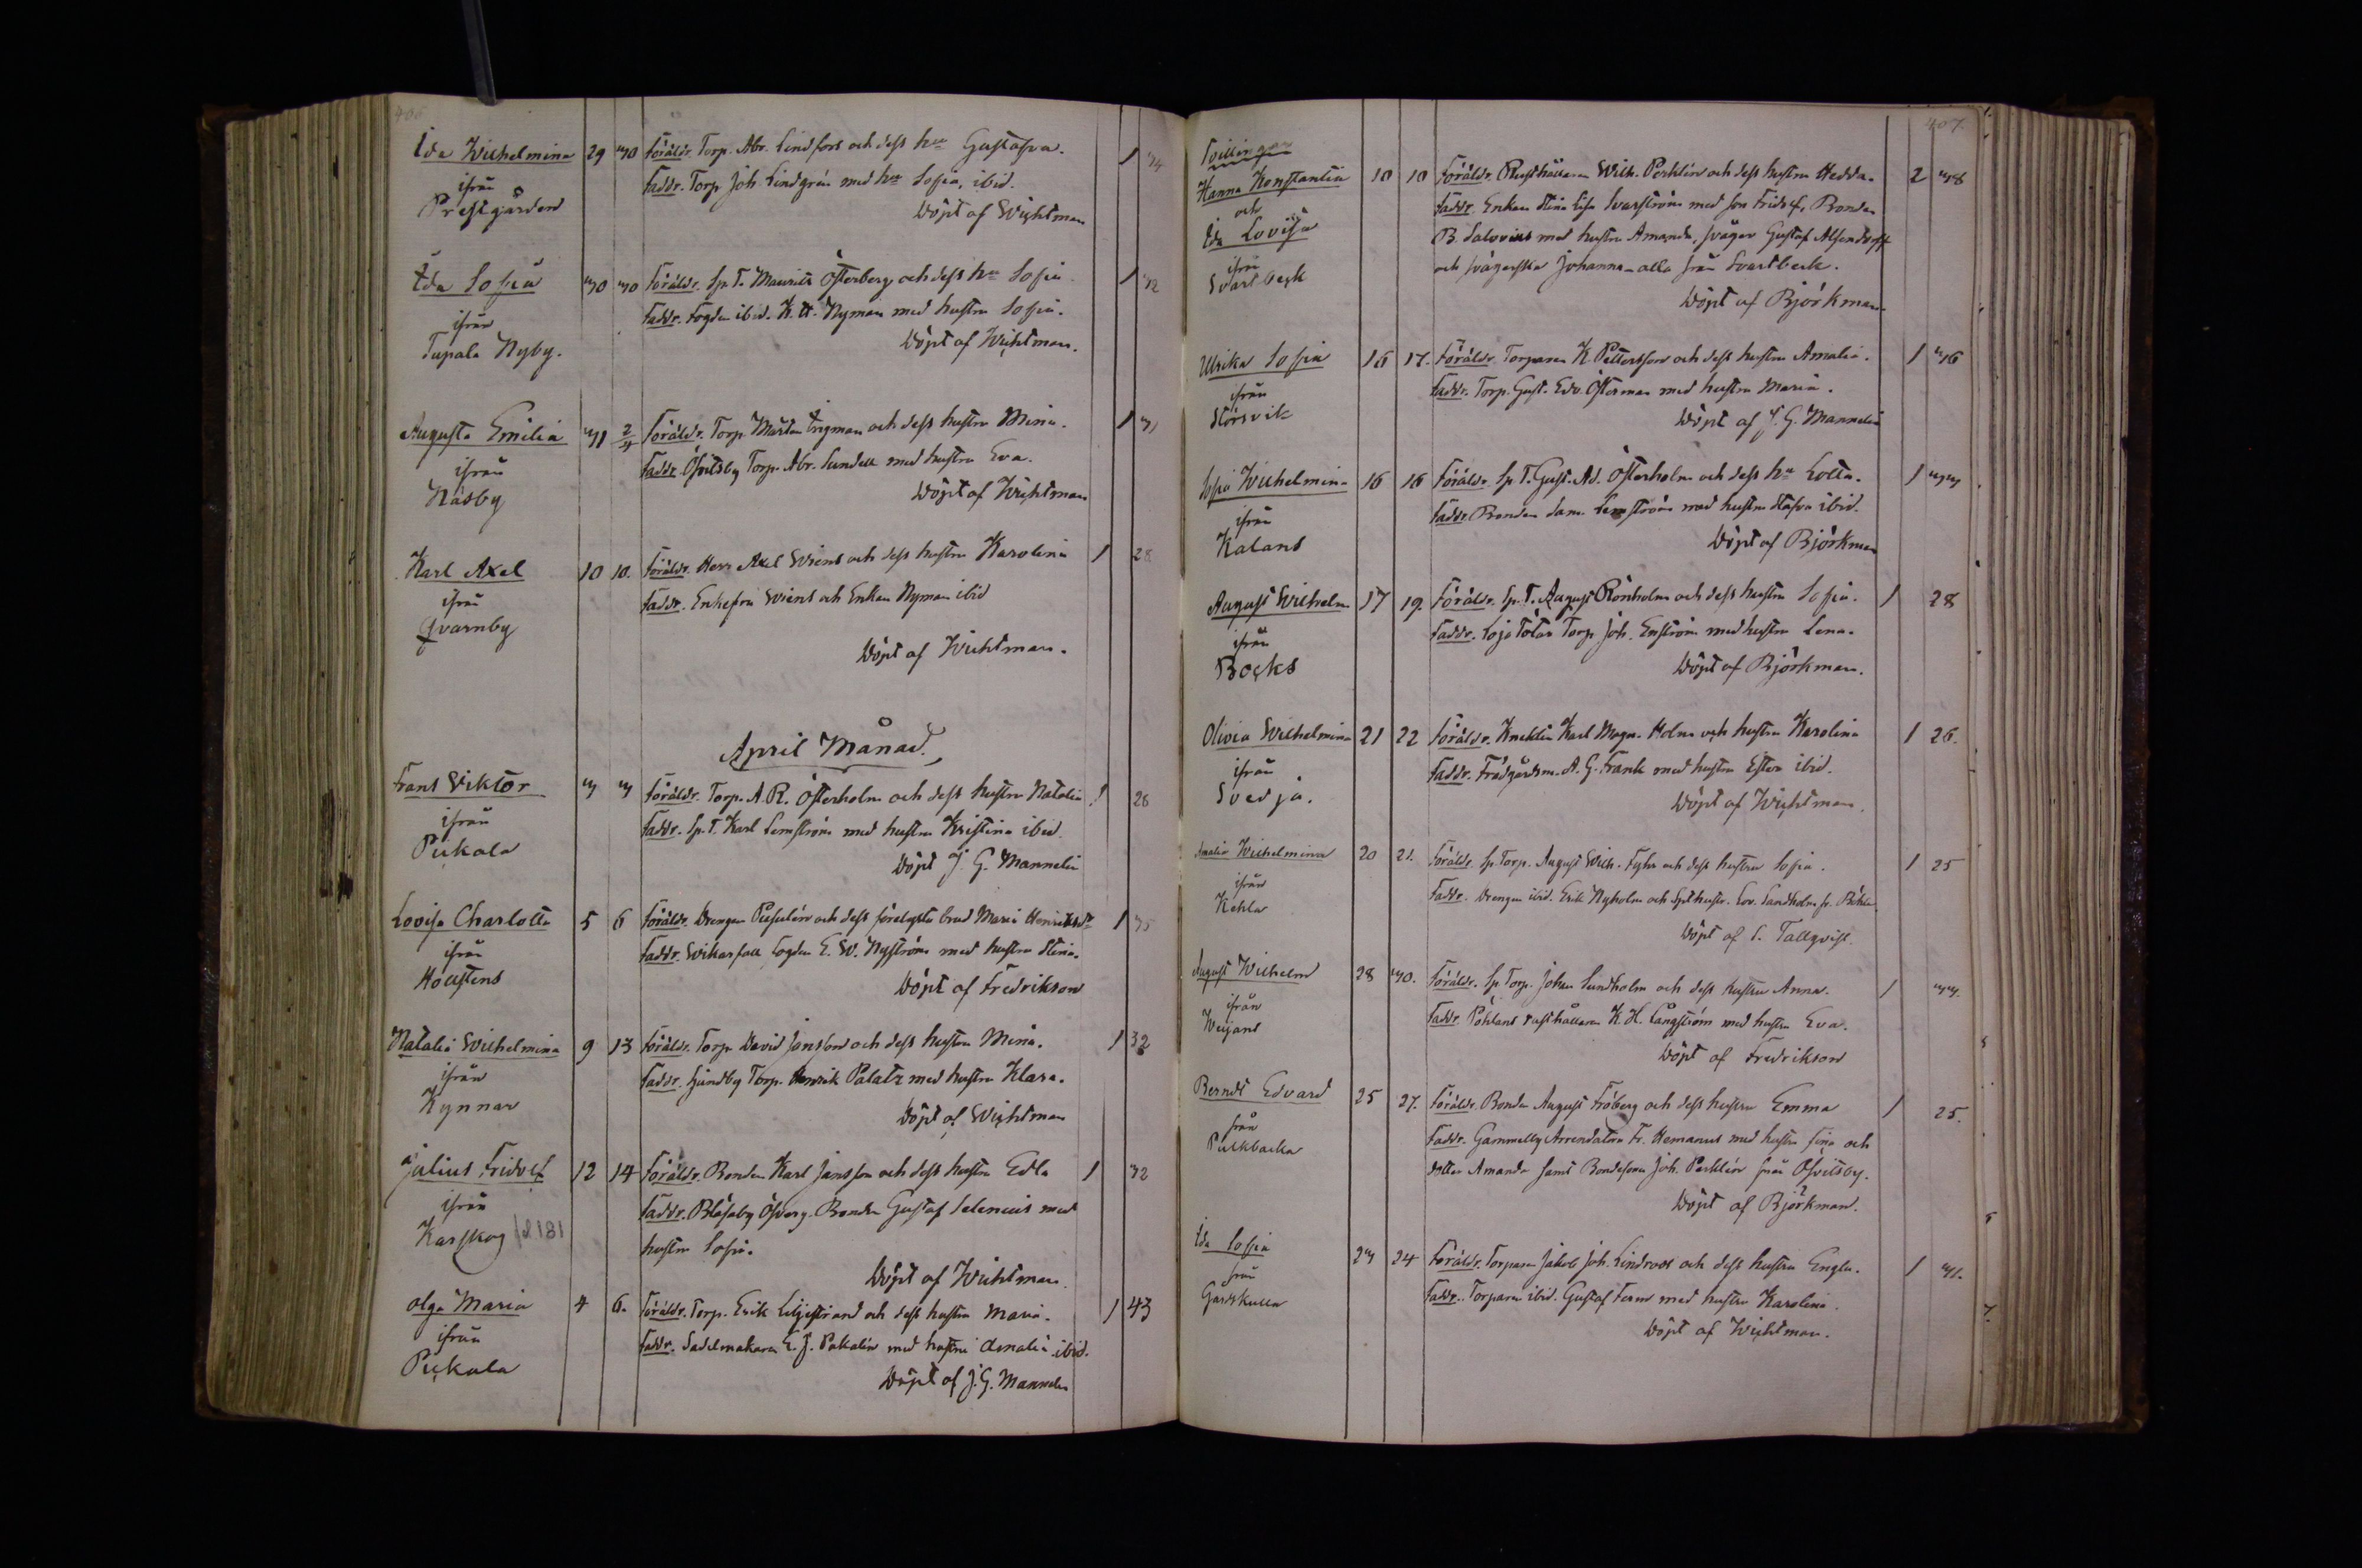 406
Ida Wilhelmina 29 30 Föräldr. Torp. Abr. Lindfors och dess hu Gustafva. 1 34
ifrån Faddr. Torp. Joh. Lindgrén med hu Sofia, ibid.
Prestgården Döpt af Wichtman
Ida Sofia 30 30 Föräldr. Sp. T. Maurits Österberg och dess hu Sofia 1 32
ifrån Faddr. Fogden ibid. K. A. Nyman med hustru Sofia.
Tupala Nyby. Döpt af Wichtman.
Augusta Emilia 31 2/4 Föräldr. Torp. Mårten Engman och dess hustru Mina. 1
ifrån Faddr. Öfvitsby Torp. Abr. Sundell med hustru Eva.
Näsby Döpt af Wichtman
Karl Axel 10 10. Föräldr. Herr Axel Wiens och dess hustru Karolina 1 28
ifrån Faddr. Enkefru Wiens och Enkan Nyman ibid
Qvarnby Döpt af Wichtman.
April Månad.
Frans Viktor 3 3 Föräldr. Torp. A. R. Österholm och dess hustru Natalia 1 26
ifrån Faddr. Sp. T. Karl Lemström med hustru Kristina ibid.
Pickala Döpt af J. G. Mannelin
Lovisa Charlotta 5 6 Föräldr. Drengen och dess förelofvta brud Maria Henriksdr 1 35
ifrån Faddr. Wikars fall Fogden E. W. Nyström med hustru Stina.
Hollstens Döpt af Fredrikson
Natalia Wilhelmina 9 13 Föräldr. Torp. David Jansson och dess hustru Mina. 1 32
ifrån Faddr. Sjundby Torp. Henrik Palatz med hustru Klara.
Kynnar Döpt af Wichtman
Julius Fridolf 12 14 Föräldr. Bonden Karl Jansson och dess hustru Edla 1 32
ifrån Faddr. Blåsaby Öfverg. Bonden Gustaf Selenius med
Karskog s. 181 hustru Sofia.
Döpt af Wichtman
Olga Maria 4 6. Föräldr. Torp. Erik Liljestrand och dess hustru Maria. 1 43
ifrån Faddr. Sadelmakaren E. J. Pakalén med hustru Amalia ibid.
Pickala Döpt af J. G. Mannelin
407.
Tvillingar
Hanna Konstantia 10 10 Föräldr. Rusthållaren Wilh. Perklén och dess hustru Hedda. 2 38
och Faddr. Enkan Stina Lisa Svarström med son Fridolf, Bonden
Ida Lovisa B. Salovius med hustru Amanda, svåger Gustaf Alfendorff
ifrån och svägerska Johanna alla från Svartbeck.
Svartbeck Döpt af Björkman
Ulrika Sofia 16 17. Föräldr. Torparen K. Pettersson och dess hustru Amalia. 1 36
ifrån Faddr. Torp. Gust. Edv. Österman med hustru Maria.
Störsvik Döpt af J. G. Mannelin
Sofia Wilhelmina 16 16 Föräldr. Sp. T. Gust. Ad. Österholm och dess hu Lotta. 1 33
ifrån Faddr. Bonden Sam. Lemström med hustru Stafva ibid.
Kalans Döpt af Björkman
August Wilhelm 17 19. Föräldr. Sp. T. August Rönholm och dess hustru Sofia. 1 28
ifrån Faddr. Lojo Tötar Torp. Joh. Enström med hustru Lena.
Bocks Döpt af Björkman.
Olivia Wilhelmina 21 22 Föräldr. Karl Magn. Holm och hustru Karolina 1 26.
ifrån Faddr. Trädgårdsm. A. G. Frank med hustru Ester ibid.
Svedja. Döpt af Wichtman.
Amalia Wilhelmina 20 21. Föräldr. Sp. Torp. August Wilh. Fyhr och dess hustru Sofia. 1 25
ifrån Faddr. Drengen ibid. Erik Nyholm och Lov. Sandholm fr. Böhle.
Kehla Döpt af S. Tallqvist.
August Wilhelm 28 30. Föräldr. Sp. Torp. Johan Sundholm och dess hustru Anna. 1 33.
ifrån Faddr. Pöhlans rusthållaren K. H. Långström med hustru Eva.
Weijans Döpt af Fredrikson
Berndt Edvard 25 27. Föräldr. Bonden August Fröberg och dess hustru Emma 1 25.
från Faddr. Gammelby Arrendatorn Fr. Hemanus med hustru Fina och
Palkbacka dotter Amanda samt Bondesonen Joh. Perklén från Öfvitsby.
Döpt af Björkman.
Ida Sofia 23 24 Föräldr. Torparen Jakob Joh. Lindroos och dess hustru Engla. 1 31.
från Faddr. Torparen ibid. Gustaf Ferm med hustru Karolina.
Gårdskulla Döpt af Wichtman.